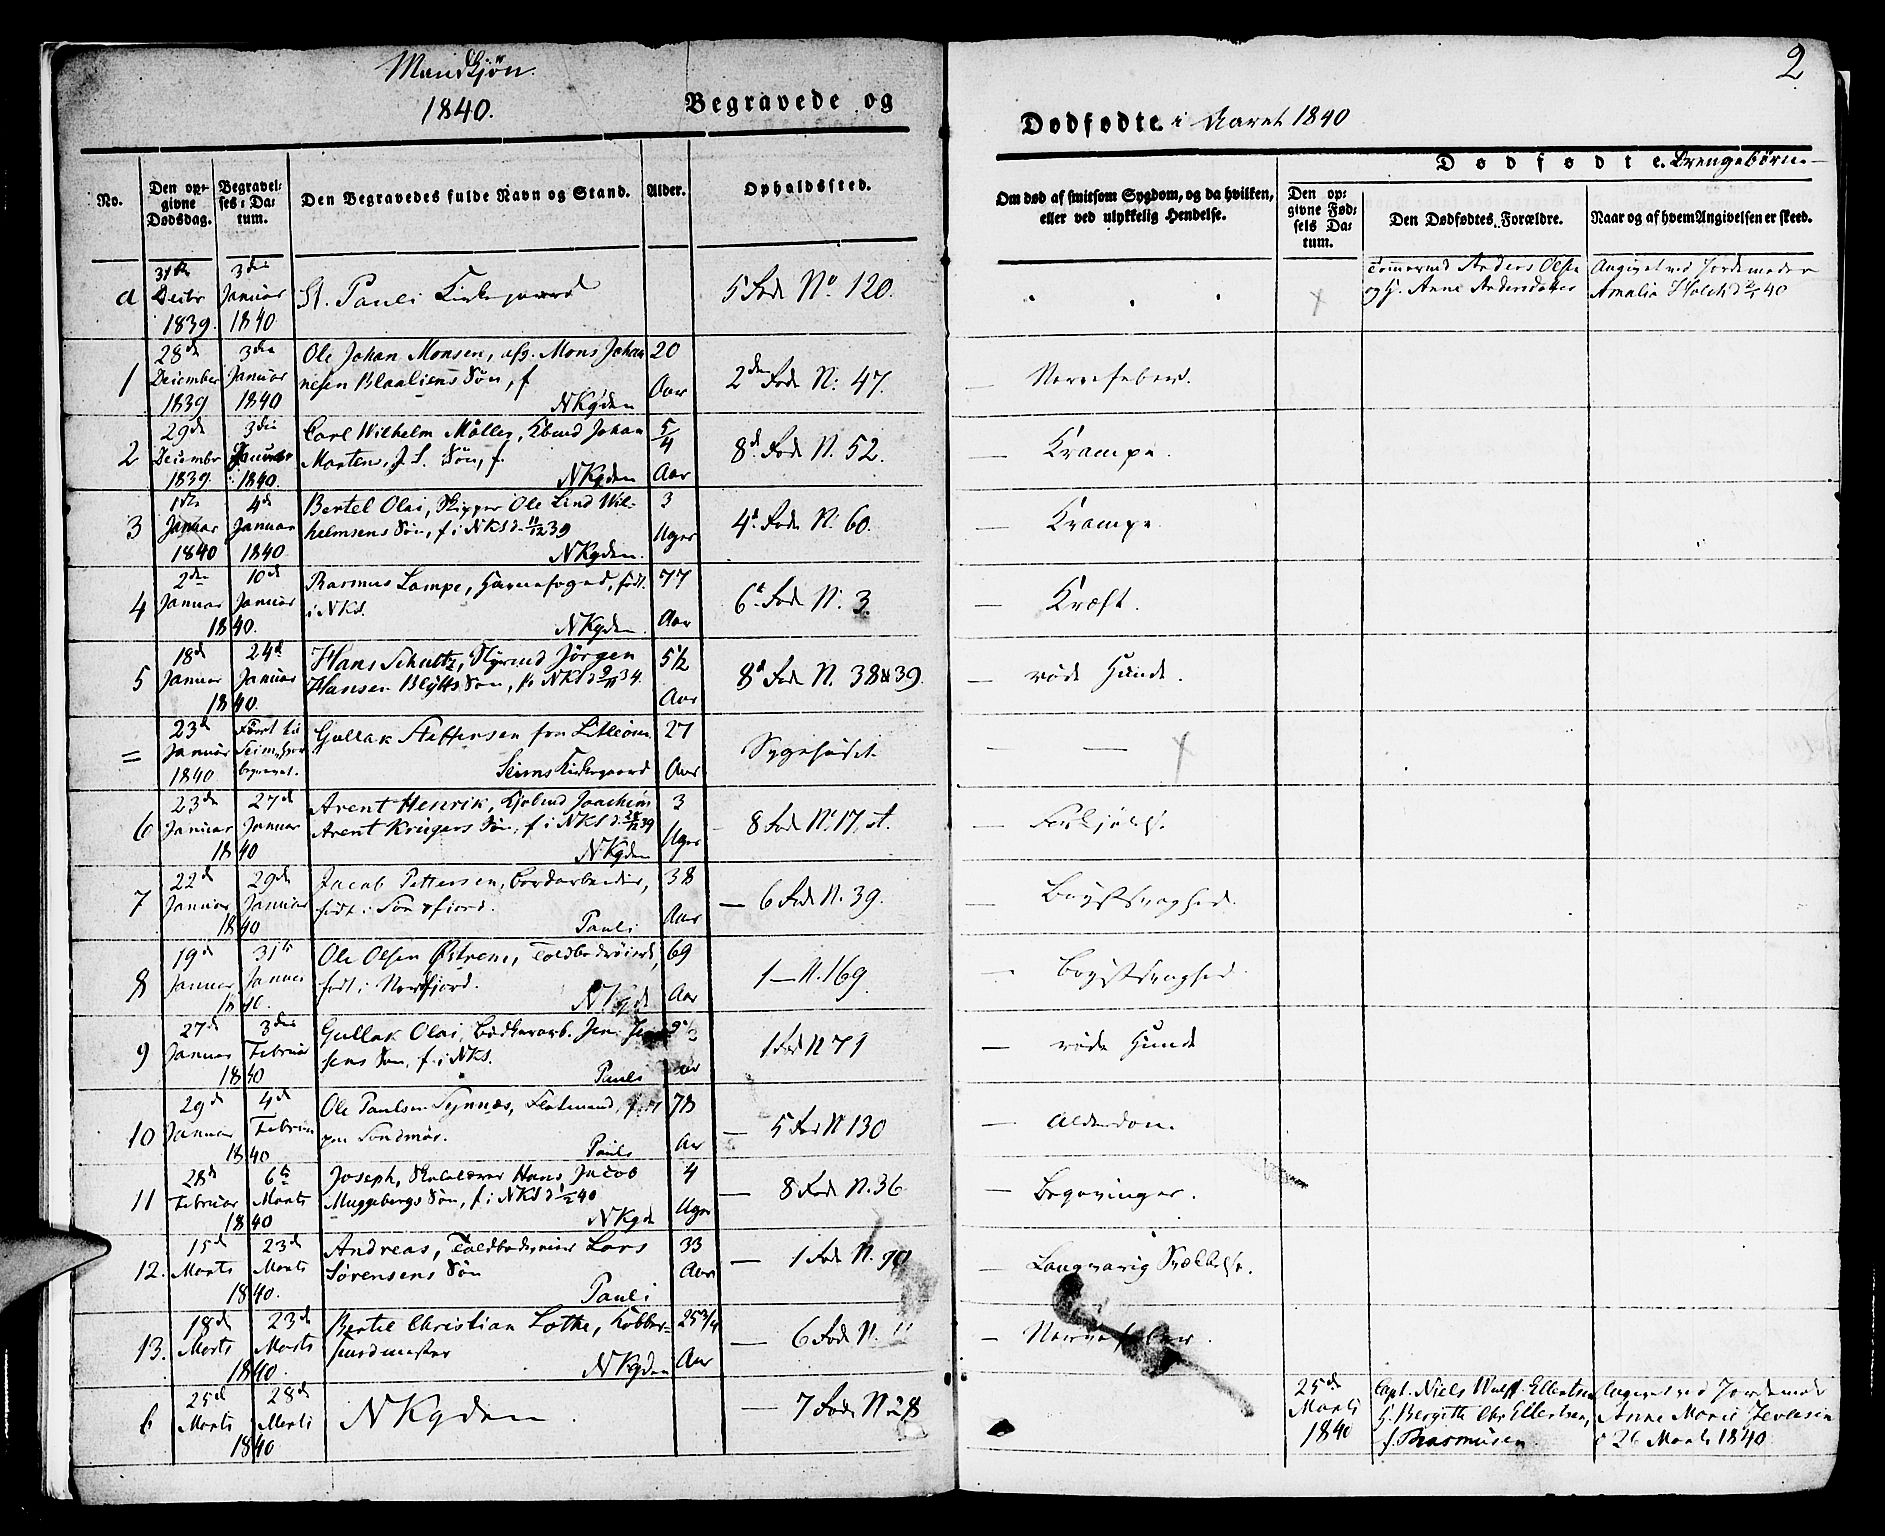 Mandkjøn.
1840.
Begravede og
Dødfødte i Aaret 1840
2
No.
Den op-
givne
Dødsdag.
Begravel-
ses-Da-
tum.
Den Begravedes fulde Navn og Stand.
Alder.
Opholdssted.
Om død af smitsom Sygdom, og da hvilken,
eller ved ulykkelig Hendelse.
Dødfødte Drengebørn
Den op-
givne Fød-
sels Da-
tum.
Den Dødfødtes Forældre.
Naar og af hvem Angivelsen er skeed.
a
31te Decbr 1839.
3die Januar 1840
St. Pauli Kirkegaard
5 Rode No 120.
Anders Olsen
og H. Anne Andersdatter
Angivet ved Jordemoder
Amalia Holck d 2/1 40
1
28de December 1839
3die Januar 1840
Ole Johan Monsen, afg. Mons Johan
nesen Blaaliens Søn, f
NKgden
20 Aar
2den Rode N: 47.
Nervefeber.
2
29de December 1839.
3die Januar 1840.
Carl Wilhelm Møller, Kbmd Johan
Morten, J. S. Søn, f.
NKgden
5/4 Aar
8de Rode N. 52.
Krampe.
3
1ste Januar 1840
4de Januar 1840
Bertel Olai, Skipper Ole Lind Wil-
helmsens Søn, f. i NKS d. 11/12 39
NKgden.
3 Uger
4de Rode N: 60.
Krampe.
4
2den Januar
10de Januar
1840.
Rasmus Lampe, Havnefoged, født
i NKS.
NKgden.
77 Aar
6te Rode N: 3.
Kræft.
5
18de Januar
24de Januar
1840.
Hans Schultz, Styrmd Jørgen
Hansen Blytts Søn, f. NKS d 9/11 34.
5 1/2 Aar
8de Rode N. 38 & 39.
røde Hunde.
=
23de Januar 1840
Ført til Seim, hvor begravet.
Gullak Steffensen fra
Seims Kirkegaard
27 Aar
Sygehuset.
6
23de Januar
27de Januar
1840
Arent Henrik, Kjøbmd Joachim
Arent Krugers Søn, f i NKS d. 28/12 39
NKgden
3 Uger
8 Rode N. 17,
Forkjølelse.
7
22de Januar
29de Januar
1840
Jacob Pettersen, Bordarbeider,
født i Søndfjord.
Pauli
38 Aar
6 Rode N. 39.
Brystsvaghed.
8
19de Januar
31te Januar
1840.
Ole Olsen Østrem, Toldbetjent,
født i Nordfjord.
NKgd
69 Aar
1 — N. 169
Brystsvaghed.
9
27de Januar
3die Februar
1840
Gullak Olai, Bødkerarb. Jens
sens Søn, f. i NKS.
Pauli
1 Rode N 71
røde Hunde
10
29de Januar
4de Februar
1840
Ole Paulsen Synnæs, Flotmand, født
paa Søndmør.
Pauli
78 Aar
5 Rode N 130
Alderdom.
11
28de Februar
6te Marts
1840
Joseph, Skolelærer Hans Jacob
Muggebergs Søn, f. i NKS d 1/2 40
NKgd
4 Uger
8 Rode N. 36
Begavinger.
12.
15de Marts
23de Marts
1840.
Andreas, Lars
Sørensens Søn
Pauli
33 Aar
1 Rode N. 90
Langvarig Svækkelse.
13.
18de Marts
23de Marts
1840.
Bertel Christian Lothe, Kobber-
smedmester
NKgden
25 3/4 Aar
6 Rode N. 11
Nervefeber.
b
25de Marts
28de Marts
1840
NKgden.
7 Rode N 28
25de Marts 1840
Capt. Niels Wulff Ellertsen
H. Bergitte Chr Ellertsen,
f. Rasmusen
Angivet ved Jordemoder
Anne Marie
d 26 Marts 1840